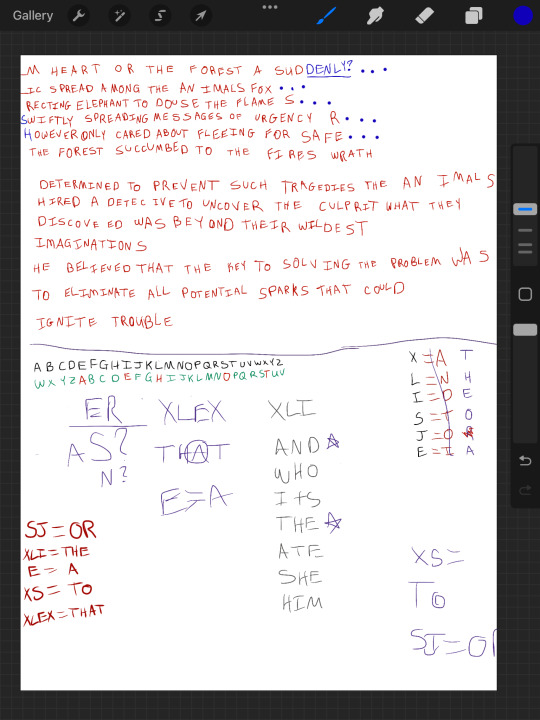 Gallery
M HEART OR THE FOREST A SUDDENLY? ...
IC SPREAD AMONG THE ANIMALS FOX ...
RECTING ELEPHANT TO DOUSE THE FLAME S...
SWIFTLY SPREADING MESSAGES OF URGENCY R...
HOWEVER ONLY CARED ABOUT FLEEING FOR SAFE...
THE FOREST SUCCUMBED TO THE FIRES WRATH
DETERMINED TO PREVENT SUCH TRAGEDIES THE ANIMALS
HIRED A DETECIVE TO UNCOVER THE CULPRIT WHAT THEY
DISCOVE ED WAS BEYOND THEIR WILDEST
IMAGINATIONS
HE BELIEVED THAT THE KEY TO SOLVING THE PROBLEM WAS
TO ELIMINATE ALL POTENTIAL SPARKS THAT COULD
IGNITE TROUBLE
A B C D E F G H I J K L M N O P Q R S T U V W X Y Z
W X Y Z A B C D E F G H I J K L M N O P Q R S T U V
X = A T
L = N H
I = D E
S = T O
J = O R
E = I A
ER
AS?
N?
XLEX
THAT
E=A
XLI
AND
WHO
ITS
THE
ATE
SHE
HIM
SJ=OR
XLI=THE
E = A
XS = TO
XLEX=THAT
XS=
TO
SJ=OR